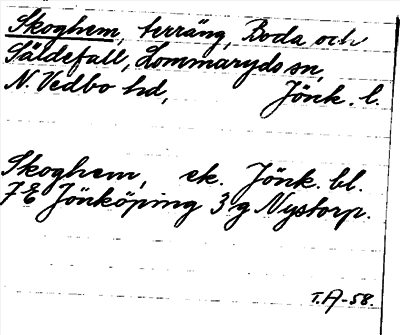 Skoghem, terräng, Boda och
Säldefall, Lommaryds sn,
N. Vedbo hd, Jönk. l.
Skoghem, ek. Jönk. bl.
7 E Jönköping 3 g Nystorp.
T.A-58.